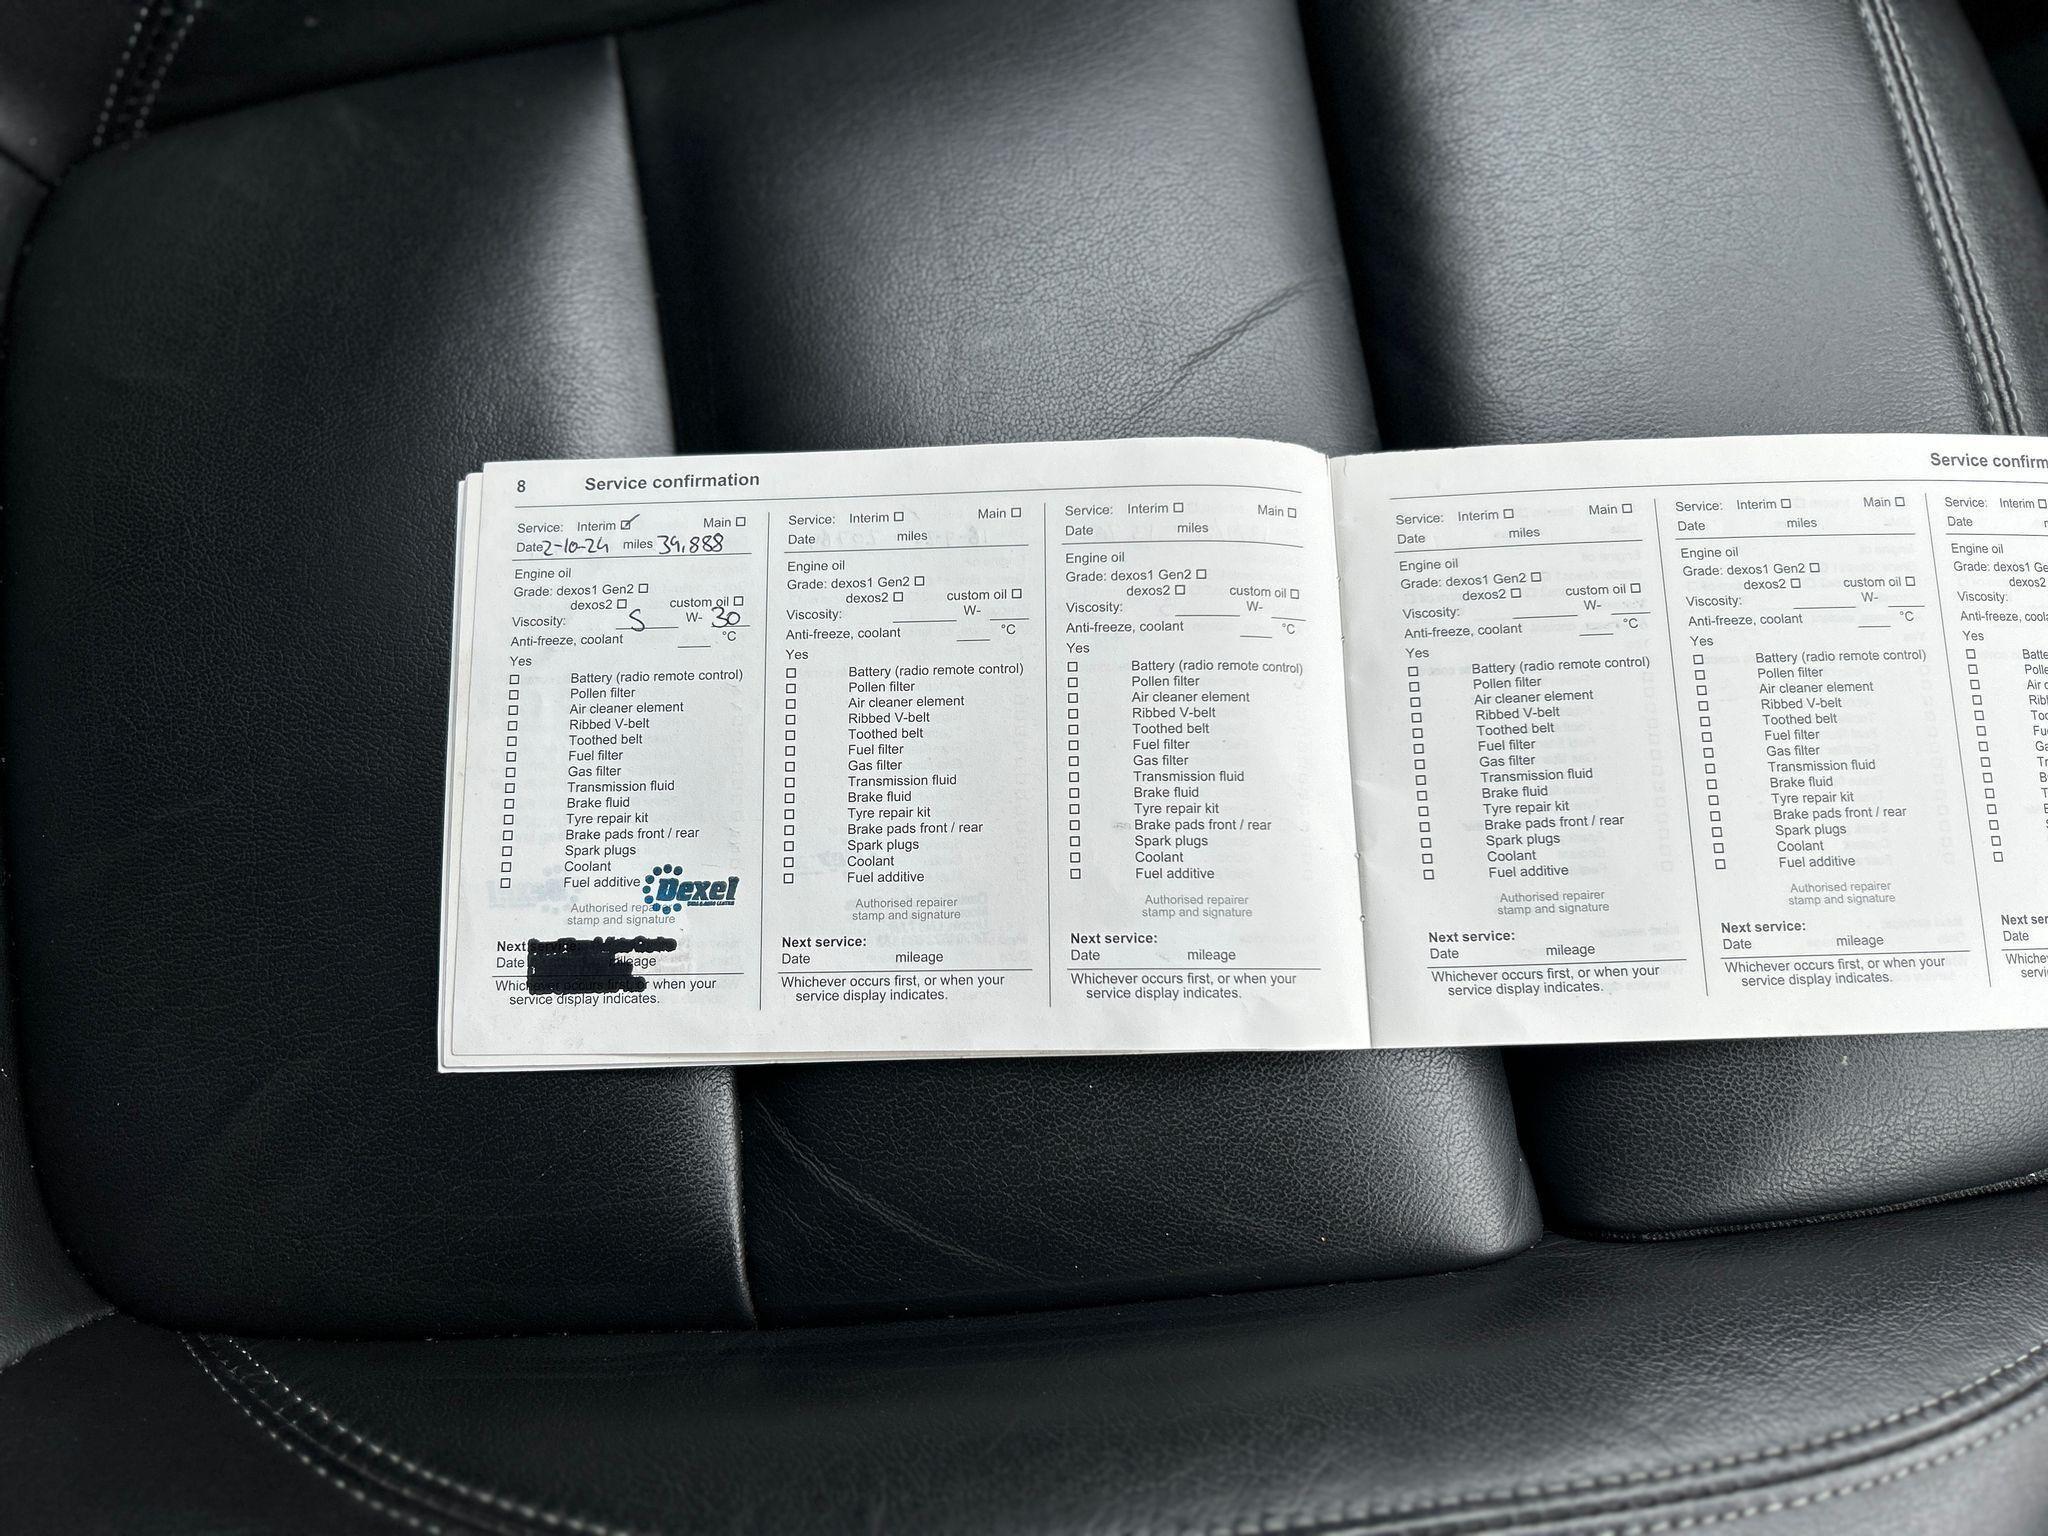 8 Service confirmation
Service: Interim Main
Date 2-10-24 miles 39,888
Engine oil
Grade: dexos1 Gen2
dexos2 custom oil
Viscosity: 5 W- 30
Anti-freeze, coolant °C
Yes
Battery (radio remote control)
Pollen filter
Air cleaner element
Ribbed V-belt
Toothed belt
Fuel filter
Gas filter
Transmission fluid
Brake fluid
Tyre repair kit
Brake pads front / rear
Spark plugs
Coolant
Fuel additive
Dexel
Authorised repairer
stamp and signature
Next service:
Date mileage
Whichever occurs first, or when your
service display indicates.
Service: Interim Main
Date miles
Engine oil
Grade: dexos1 Gen2
dexos2 custom oil
Viscosity: W-
Anti-freeze, coolant °C
Yes
Battery (radio remote control)
Pollen filter
Air cleaner element
Ribbed V-belt
Toothed belt
Fuel filter
Gas filter
Transmission fluid
Brake fluid
Tyre repair kit
Brake pads front / rear
Spark plugs
Coolant
Fuel additive
Authorised repairer
stamp and signature
Next service:
Date mileage
Whichever occurs first, or when your
service display indicates.
Service: Interim Main
Date miles
Engine oil
Grade: dexos1 Gen2
dexos2 custom oil
Viscosity: W-
Anti-freeze, coolant °C
Yes
Battery (radio remote control)
Pollen filter
Air cleaner element
Ribbed V-belt
Toothed belt
Fuel filter
Gas filter
Transmission fluid
Brake fluid
Tyre repair kit
Brake pads front / rear
Spark plugs
Coolant
Fuel additive
Authorised repairer
stamp and signature
Next service:
Date mileage
Whichever occurs first, or when your
service display indicates.
Service confirm
Service: Interim Main
Date miles
Engine oil
Grade: dexos1 Gen2
dexos2 custom oil
Viscosity: W-
Anti-freeze, coolant °C
Yes
Battery (radio remote control)
Pollen filter
Air cleaner element
Ribbed V-belt
Toothed belt
Fuel filter
Gas filter
Transmission fluid
Brake fluid
Tyre repair kit
Brake pads front / rear
Spark plugs
Coolant
Fuel additive
Authorised repairer
stamp and signature
Next service:
Date mileage
Whichever occurs first, or when your
service display indicates.
Service: Interim Main
Date miles
Engine oil
Grade: dexos1 Gen2
dexos2 custom oil
Viscosity: W-
Anti-freeze, coolant °C
Yes
Battery (radio remote control)
Pollen filter
Air cleaner element
Ribbed V-belt
Toothed belt
Fuel filter
Gas filter
Transmission fluid
Brake fluid
Tyre repair kit
Brake pads front / rear
Spark plugs
Coolant
Fuel additive
Authorised repairer
stamp and signature
Next service:
Date mileage
Whichever occurs first, or when your
service display indicates.
Service: Interim
Date
Engine oil
Grade: dexos1 Ge
dexos2
Viscosity:
Anti-freeze, coola
Yes
Next ser
Date